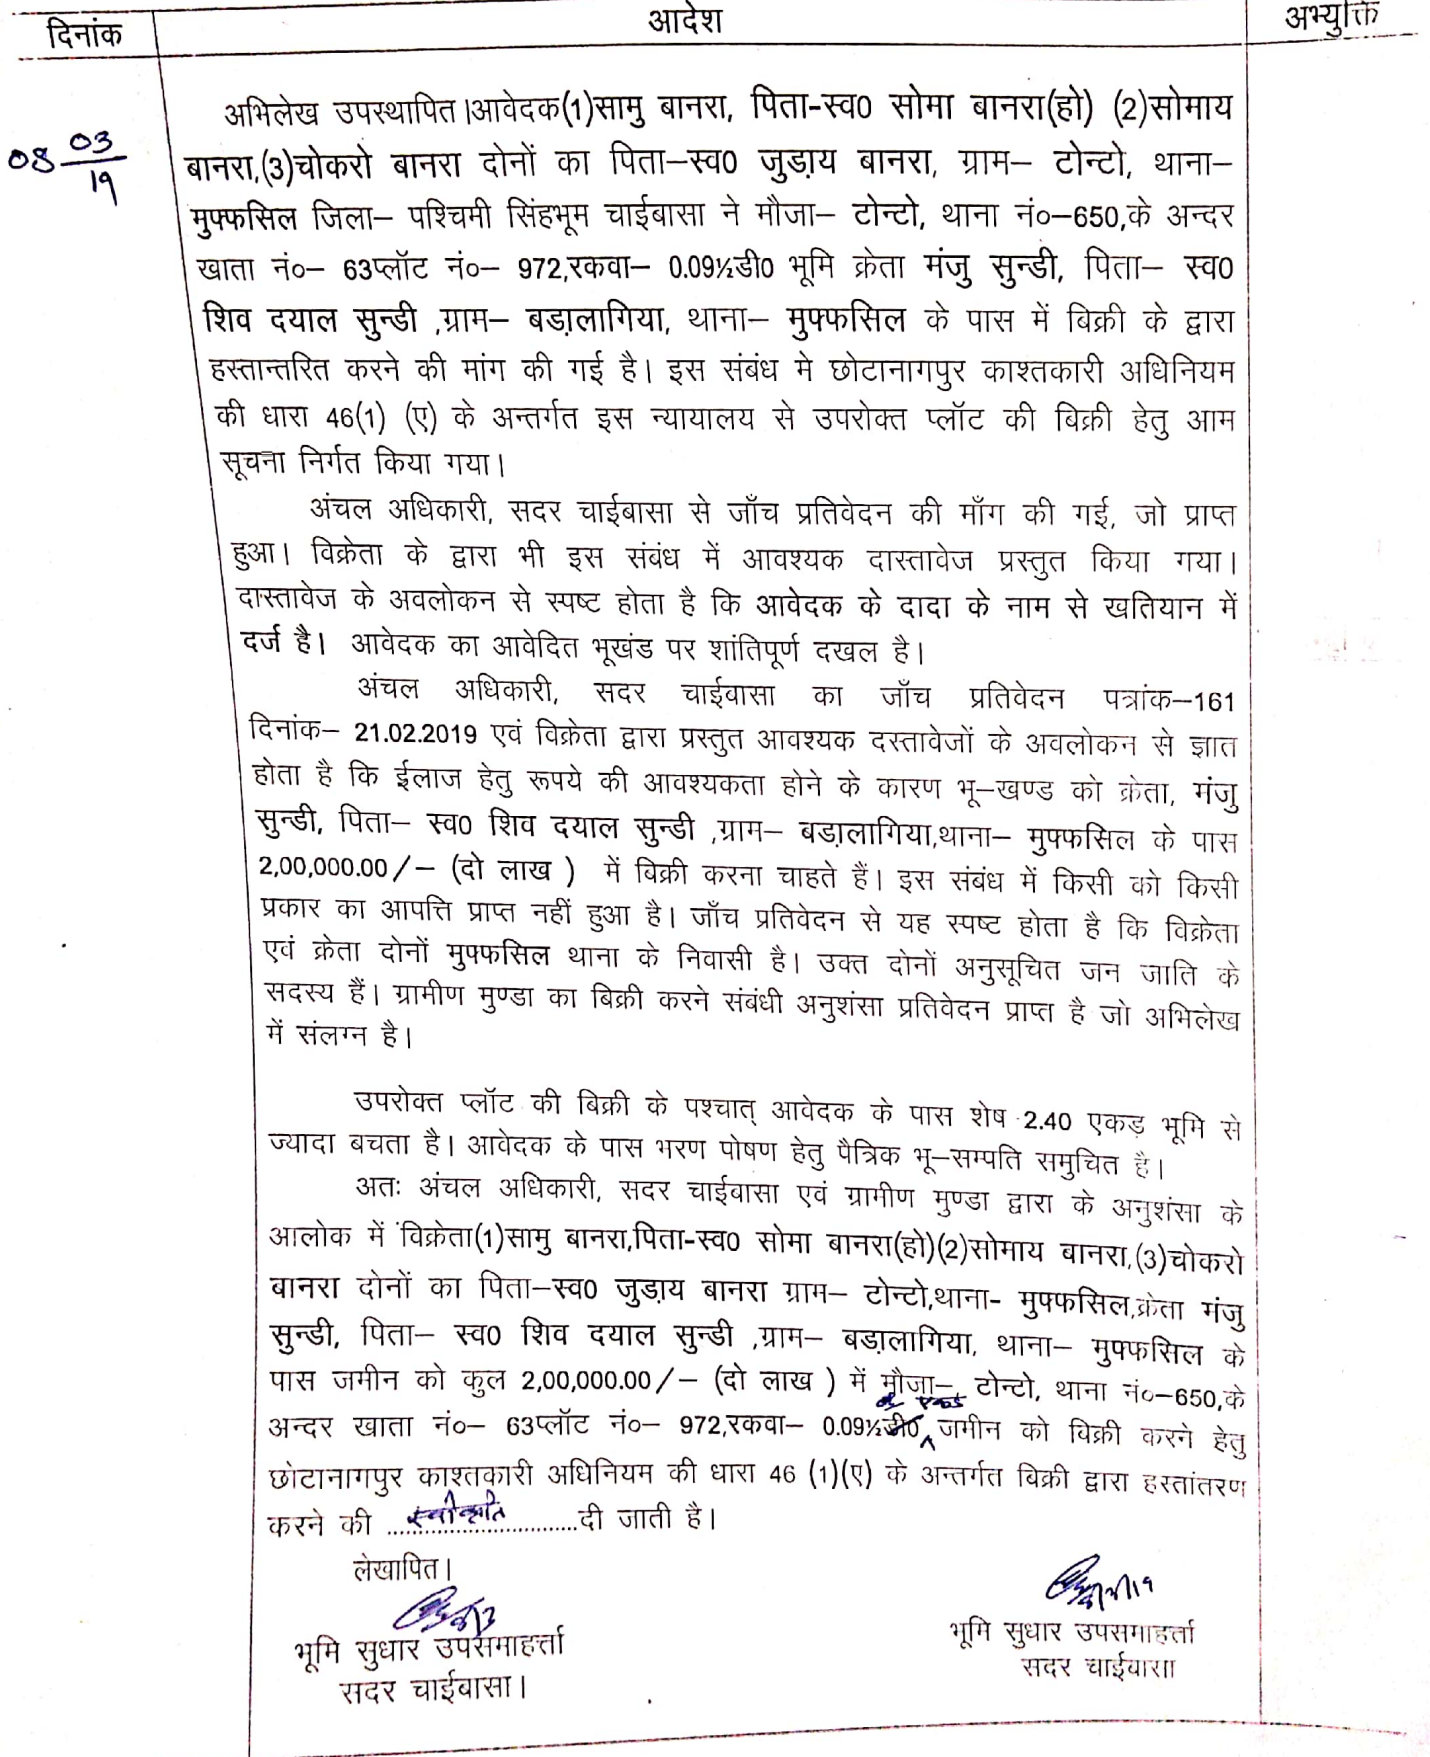 दिनांक आदेश अभ्युक्ति
08 03/19
अभिलेख उपस्थापित।आवेदक(1)सामु बानरा, पिता-स्व0 सोमा बानरा(हो) (2)सोमाय
बानरा,(3)चोकरो बानरा दोनों का पिता–स्व0 जुड़ाय बानरा, ग्राम– टोन्टो, थाना–
मुफ्फसिल जिला– पश्चिमी सिंहभूम चाईबासा ने मौजा– टोन्टो, थाना नं०–650,के अन्दर
खाता नं०– 63प्लॉट नं०– 972,रकवा– 0.09½डी0 भूमि क्रेता मंजु सुन्डी, पिता– स्व0
शिव दयाल सुन्डी ,ग्राम– बड़ालागिया, थाना– मुफ्फसिल के पास में बिक्री के द्वारा
हस्तान्तरित करने की मांग की गई है। इस संबंध मे छोटानागपुर काश्तकारी अधिनियम
की धारा 46(1) (ए) के अन्तर्गत इस न्यायालय से उपरोक्त प्लॉट की बिक्री हेतु आम
सूचना निर्गत किया गया।
अंचल अधिकारी, सदर चाईबासा से जाँच प्रतिवेदन की माँग की गई, जो प्राप्त
हुआ। विक्रेता के द्वारा भी इस संबंध में आवश्यक दास्तावेज प्रस्तुत किया गया।
दास्तावेज के अवलोकन से स्पष्ट होता है कि आवेदक के दादा के नाम से खतियान में
दर्ज है। आवेदक का आवेदित भूखंड पर शांतिपूर्ण दखल है।
अंचल अधिकारी, सदर चाईबासा का जाँच प्रतिवेदन पत्रांक–161
दिनांक– 21.02.2019 एवं विक्रेता द्वारा प्रस्तुत आवश्यक दस्तावेजों के अवलोकन से ज्ञात
होता है कि ईलाज हेतु रूपये की आवश्यकता होने के कारण भू–खण्ड को क्रेता, मंजु
सुन्डी, पिता– स्व0 शिव दयाल सुन्डी ,ग्राम– बड़ालागिया,थाना– मुफ्फसिल के पास
2,00,000.00/– (दो लाख ) में बिक्री करना चाहते हैं। इस संबंध में किसी को किसी
प्रकार का आपत्ति प्राप्त नहीं हुआ है। जाँच प्रतिवेदन से यह स्पष्ट होता है कि विक्रेता
एवं क्रेता दोनों मुफ्फसिल थाना के निवासी है। उक्त दोनों अनुसूचित जन जाति के
सदस्य हैं। ग्रामीण मुण्डा का बिक्री करने संबंधी अनुशंसा प्रतिवेदन प्राप्त है जो अभिलेख
में संलग्न है।
उपरोक्त प्लॉट की बिक्री के पश्चात् आवेदक के पास शेष 2.40 एकड़ भूमि से
ज्यादा बचता है। आवेदक के पास भरण पोषण हेतु पैत्रिक भू–सम्पति समुचित है।
अतः अंचल अधिकारी, सदर चाईबासा एवं ग्रामीण मुण्डा द्वारा के अनुशंसा के
आलोक में विक्रेता(1)सामु बानरा,पिता-स्व0 सोमा बानरा(हो)(2)सोमाय बानरा,(3)चोकरो
बानरा दोनों का पिता–स्व0 जुड़ाय बानरा ग्राम– टोन्टो,थाना- मुफ्फसिल,क्रेता मंजु
सुन्डी, पिता– स्व0 शिव दयाल सुन्डी ,ग्राम– बड़ालागिया, थाना– मुफ्फसिल के
पास जमीन को कुल 2,00,000.00/– (दो लाख ) में मौजा– टोन्टो, थाना नं०–650,के
अन्दर खाता नं०– 63प्लॉट नं०– 972,रकवा– 0.09½डी0 जमीन को बिक्री करने हेतु
छोटानागपुर काश्तकारी अधिनियम की धारा 46 (1)(ए) के अन्तर्गत बिक्री द्वारा हस्तांतरण
करने की ....स्वीकृति....दी जाती है।
लेखापित।
भूमि सुधार उपसमाहर्त्ता भूमि सुधार उपसमाहर्त्ता
सदर चाईबासा। सदर चाईबासा